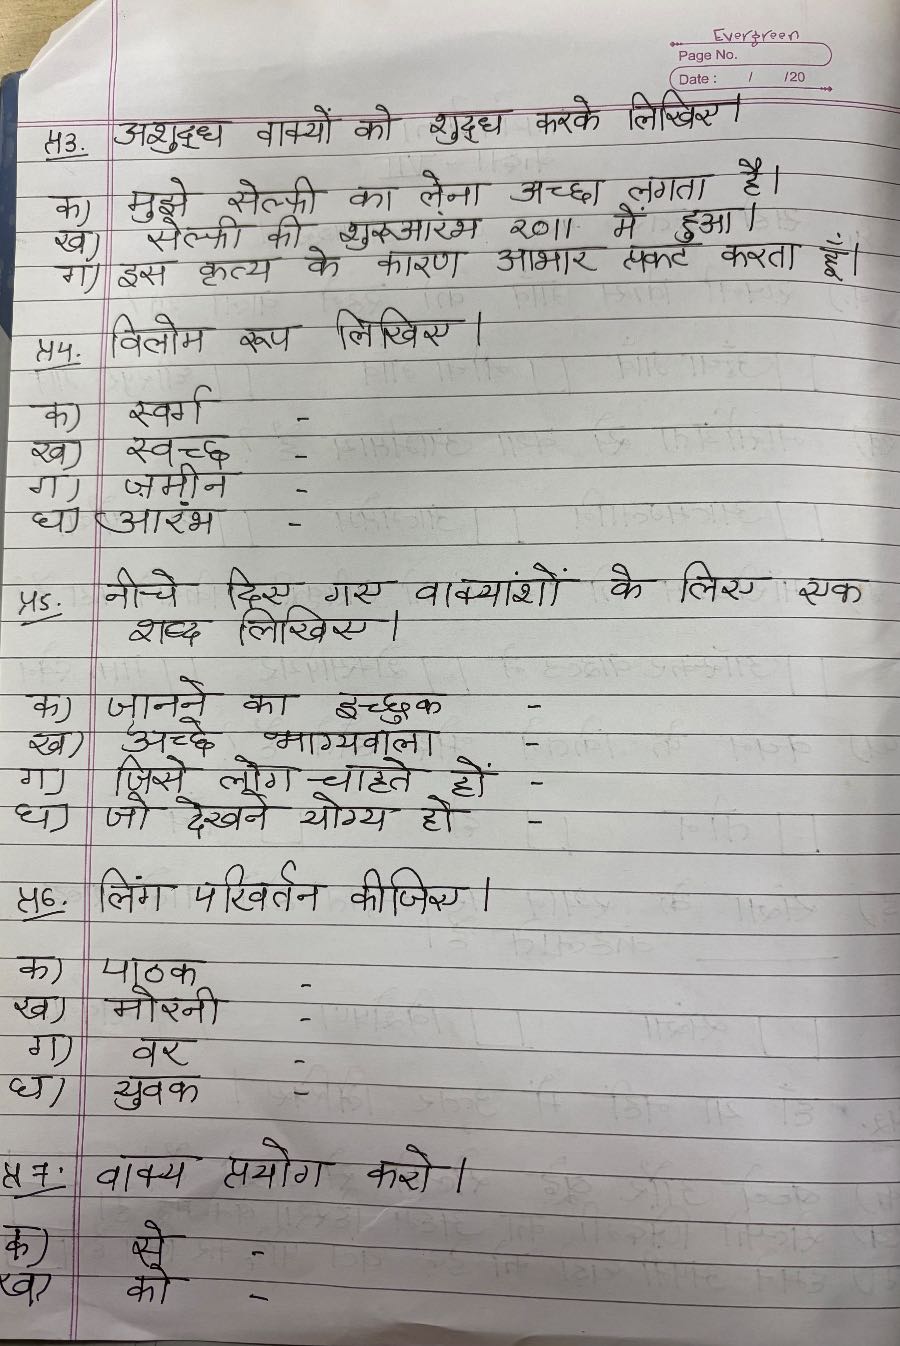 Evergreen
Page No.
Date : / /20
प्र3. अशुद्ध वाक्यों को शुद्ध करके लिखिए।
क) मुझे सेल्फी का लेना अच्छा लगता है।
ख) सेल्फी की शुरुआरंभ 2011 में हुआ।
ग) इस कृत्य के कारण आभार प्रकट करता हूँ।
प्र4. विलोम रूप लिखिए।
क) स्वर्ग -
ख) स्वच्छ -
ग) ज़मीन -
घ) आरंभ -
प्र5. नीचे दिए गए वाक्यांशों के लिए एक
शब्द लिखिए।
क) जानने का इच्छुक -
ख) अच्छे भाग्यवाला -
ग) जिसे लोग चाहते हों -
घ) जो देखने योग्य हो -
प्र6. लिंग परिवर्तन कीजिए।
क) पाठक -
ख) मोरनी -
ग) वर -
घ) युवक -
प्र7. वाक्य प्रयोग करो।
क) से -
ख) को -